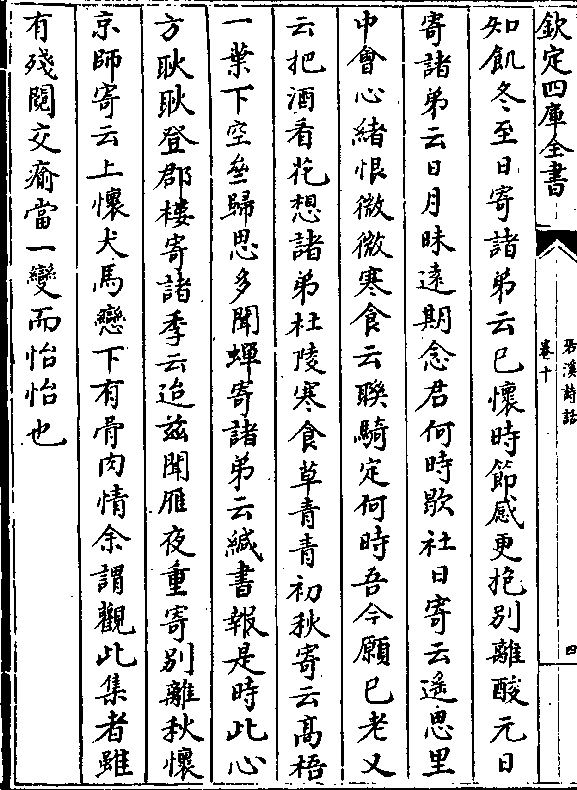 欽定四庫全書
䂬溪詩話
卷十
四
知飢冬至日寄諸弟云已懷時節感更抱別離酸元日
寄諸弟云日月昧遠期念君何時歇社日寄云遙思里
中會心緒恨微微寒食云聯騎定何時吾今願已老又
云把酒看花想諸弟杜陵寒食草青青初秋寄云高梧
一葉下空齋歸思多聞蟬寄諸弟云緘書報是時此心
方耿耿登郡樓寄諸季云追兹聞雁夜重寄別離秋懷
京師寄云上懷犬馬戀下有骨肉情余謂觀此集者雖
有殘鬩交瘉當一變而怡怡也